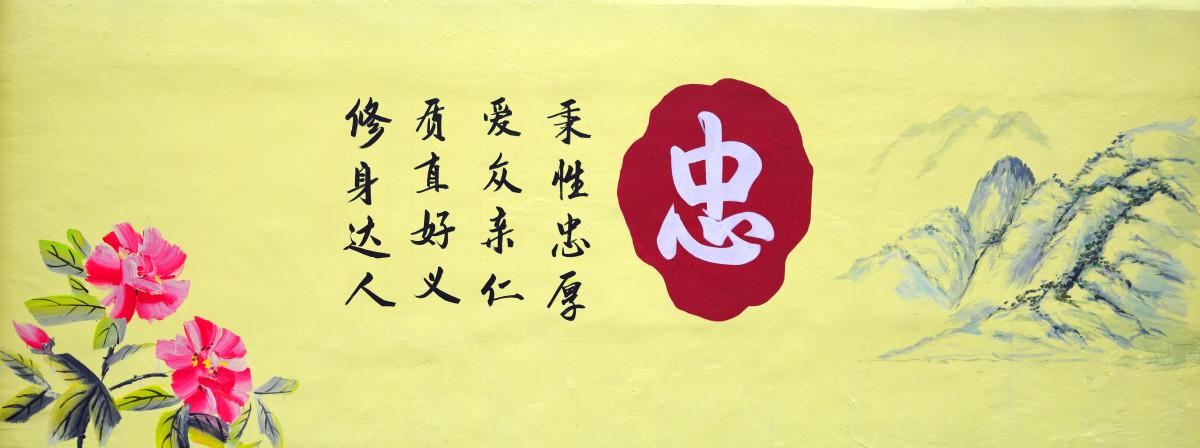 忠
秉性忠厚
爱众亲仁
质直好义
修身达人